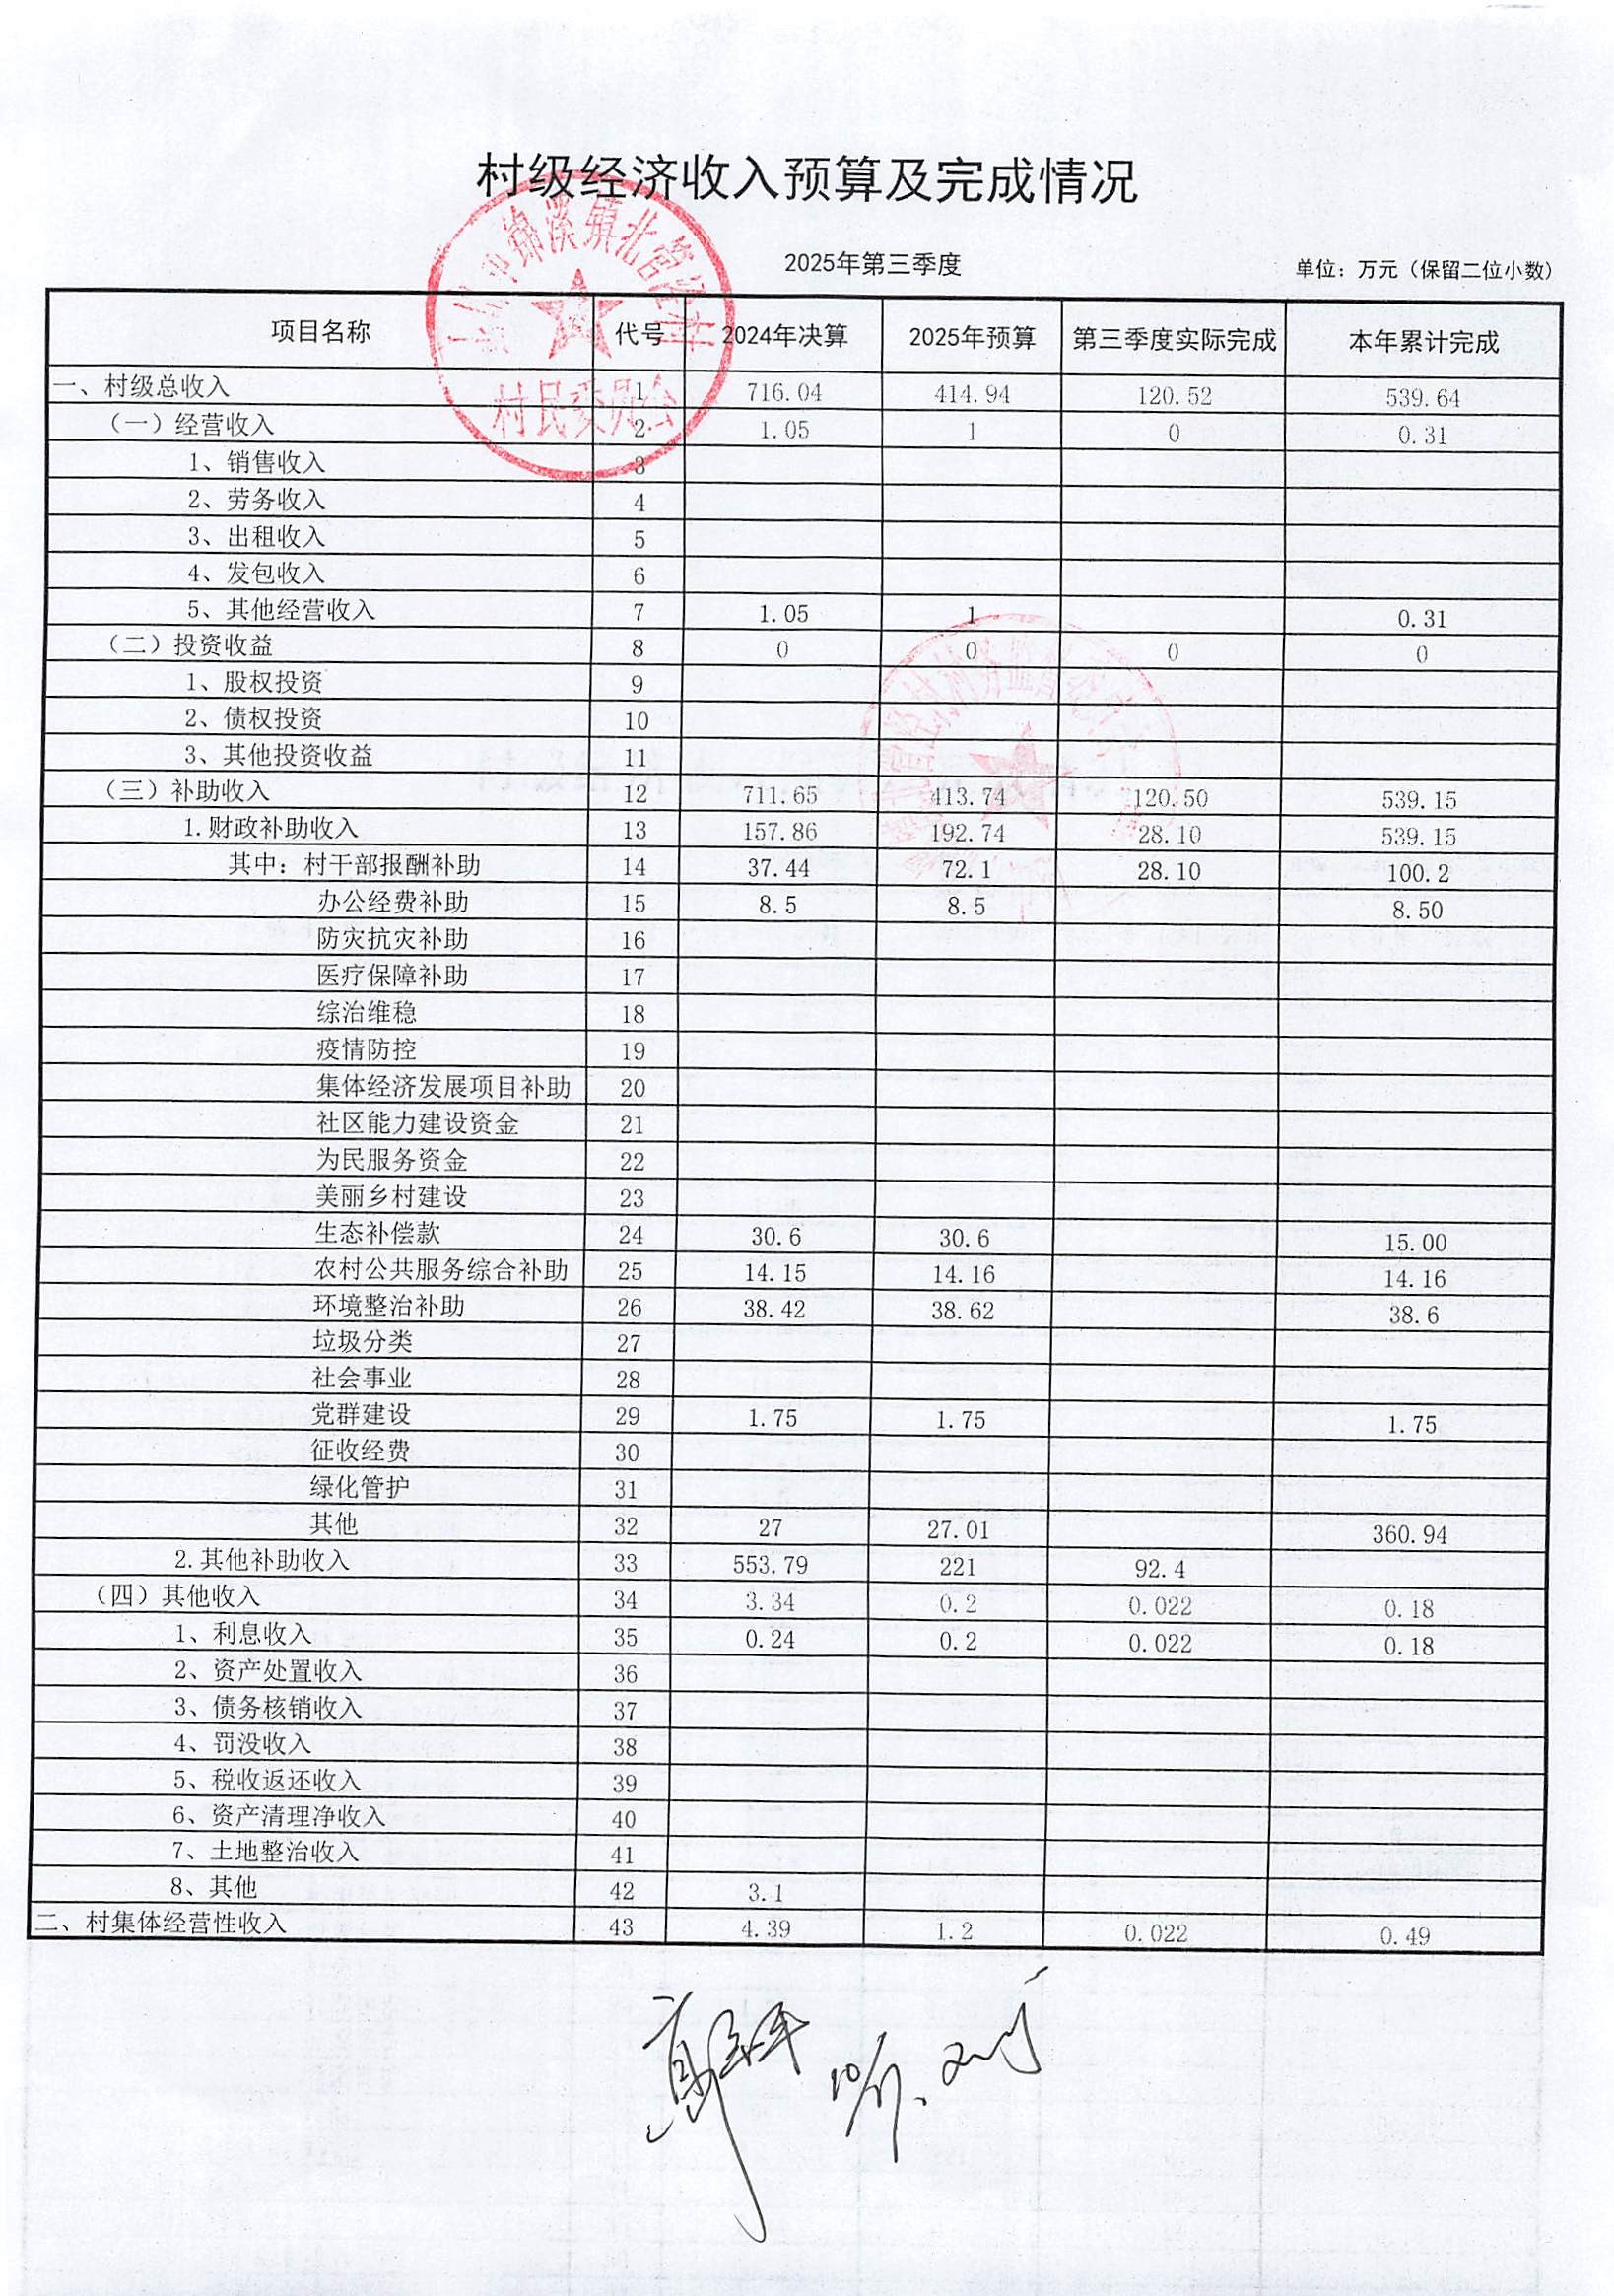 村级经济收入预算及完成情况
2025年第三季度
单位：万元（保留二位小数）
项目名称 代号 2024年决算 2025年预算 第三季度实际完成 本年累计完成
一、村级总收入 1 716.04 414.94 120.52 539.64
（一）经营收入 2 1.05 1 0 0.31
1、销售收入 3
2、劳务收入 4
3、出租收入 5
4、发包收入 6
5、其他经营收入 7 1.05 1 0.31
（二）投资收益 8 0 0 0 0
1、股权投资 9
2、债权投资 10
3、其他投资收益 11
（三）补助收入 12 711.65 413.74 120.50 539.15
1.财政补助收入 13 157.86 192.74 28.10 539.15
其中：村干部报酬补助 14 37.44 72.1 28.10 100.2
办公经费补助 15 8.5 8.5 8.50
防灾抗灾补助 16
医疗保障补助 17
综治维稳 18
疫情防控 19
集体经济发展项目补助 20
社区能力建设资金 21
为民服务资金 22
美丽乡村建设 23
生态补偿款 24 30.6 30.6 15.00
农村公共服务综合补助 25 14.15 14.16 14.16
环境整治补助 26 38.42 38.62 38.6
垃圾分类 27
社会事业 28
党群建设 29 1.75 1.75 1.75
征收经费 30
绿化管护 31
其他 32 27 27.01 360.94
2.其他补助收入 33 553.79 221 92.4
（四）其他收入 34 3.34 0.2 0.022 0.18
1、利息收入 35 0.24 0.2 0.022 0.18
2、资产处置收入 36
3、债务核销收入 37
4、罚没收入 38
5、税收返还收入 39
6、资产清理净收入 40
7、土地整治收入 41
8、其他 42 3.1
二、村集体经营性收入 43 4.39 1.2 0.022 0.49
村民委员会